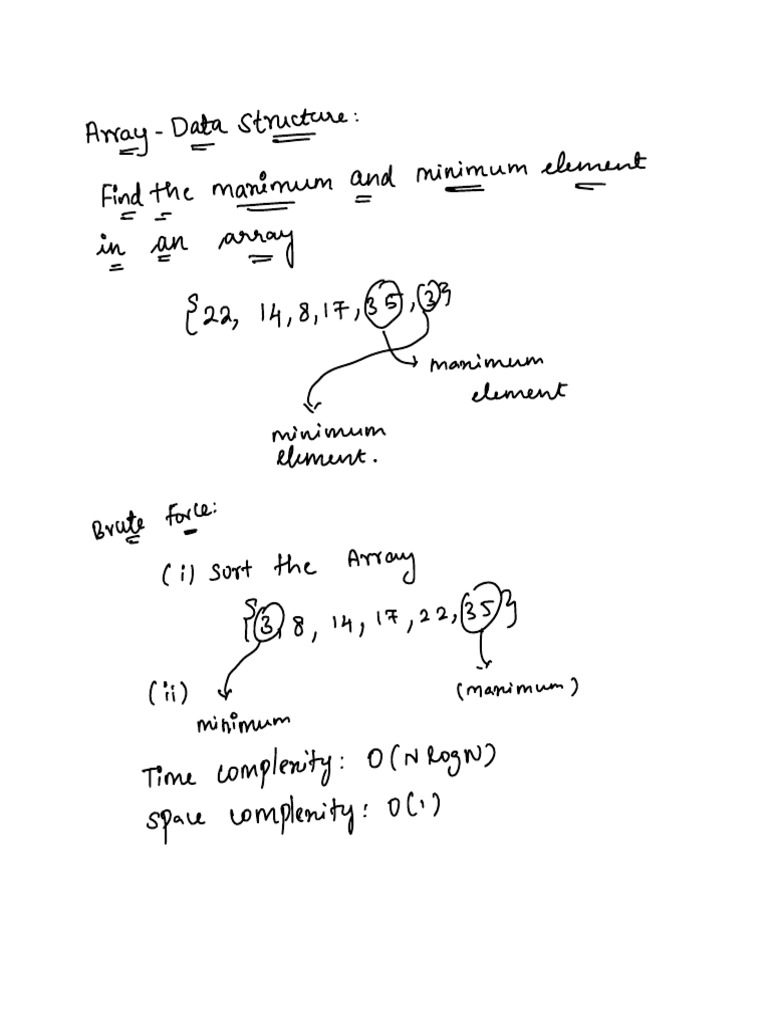 Array - Data Structure:
Find the maximum and minimum element
in an array
{22, 14, 8, 17, 35, 3}
maximum
element
minimum
element.
Brute Force:
(i) Sort the Array
{3, 8, 14, 17, 22, 35}
(ii) minimum
(maximum)
Time complexity: O(N log N)
Space complexity: O(1)